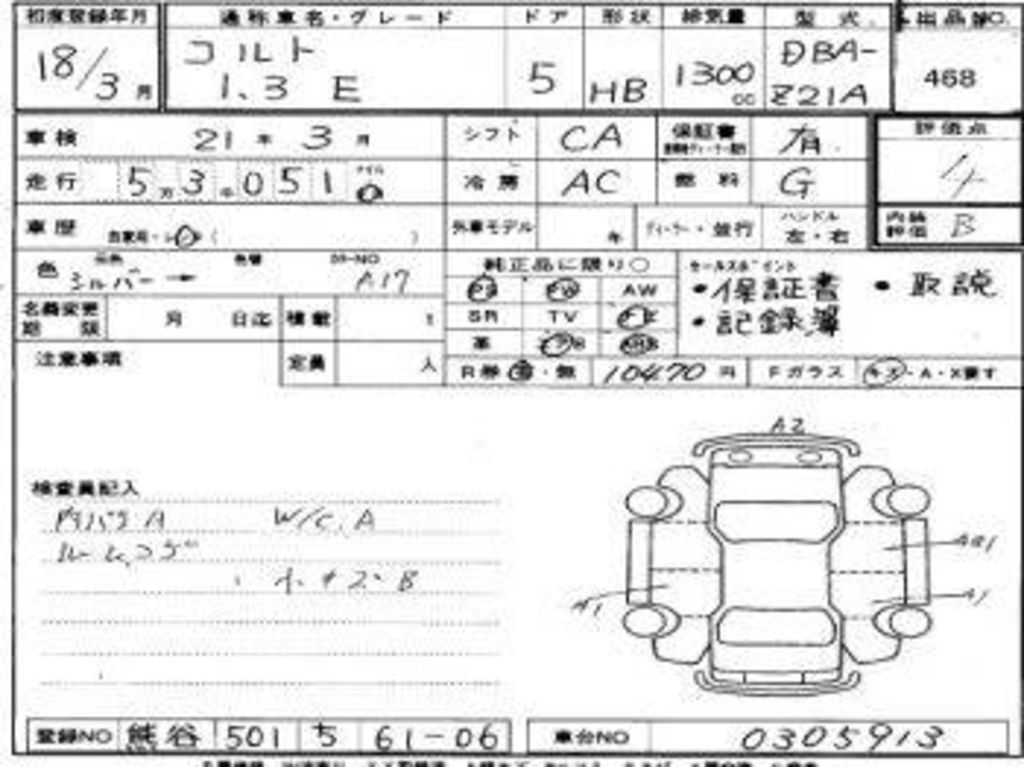 初度登録年月 通称車名・グレード ドア 形状 排気量 型式 出品NO.
18/3月 コルト 1.3 E 5 HB 1300cc DBA-Z21A 468
車検 21年3月 シフト CA 保証書 有 評価点 4
走行 5万3千051 冷房 AC 燃料 G
車歴 自家用・レンタ( ) 外車モデル 年 ディーラー・並行 ハンドル 左・右 内装評価 B
色 元色 シルバー→ 色替 カラーNO A17 純正品に限り○ セールスポイント
PS PW AW ・保証書 ・取説
SR TV ・記録簿
名義変更期限 月 日迄 積載
革 エアB ABS
注意事項 定員 人 R券 有・無 10470円 Fガラス キズ・A・X要す
A2
検査員記入
内バリA W/C.A
ルームコゲ
キズ・B
A1 A1
登録NO 熊谷 501 ち 61-06 車台NO 0305913